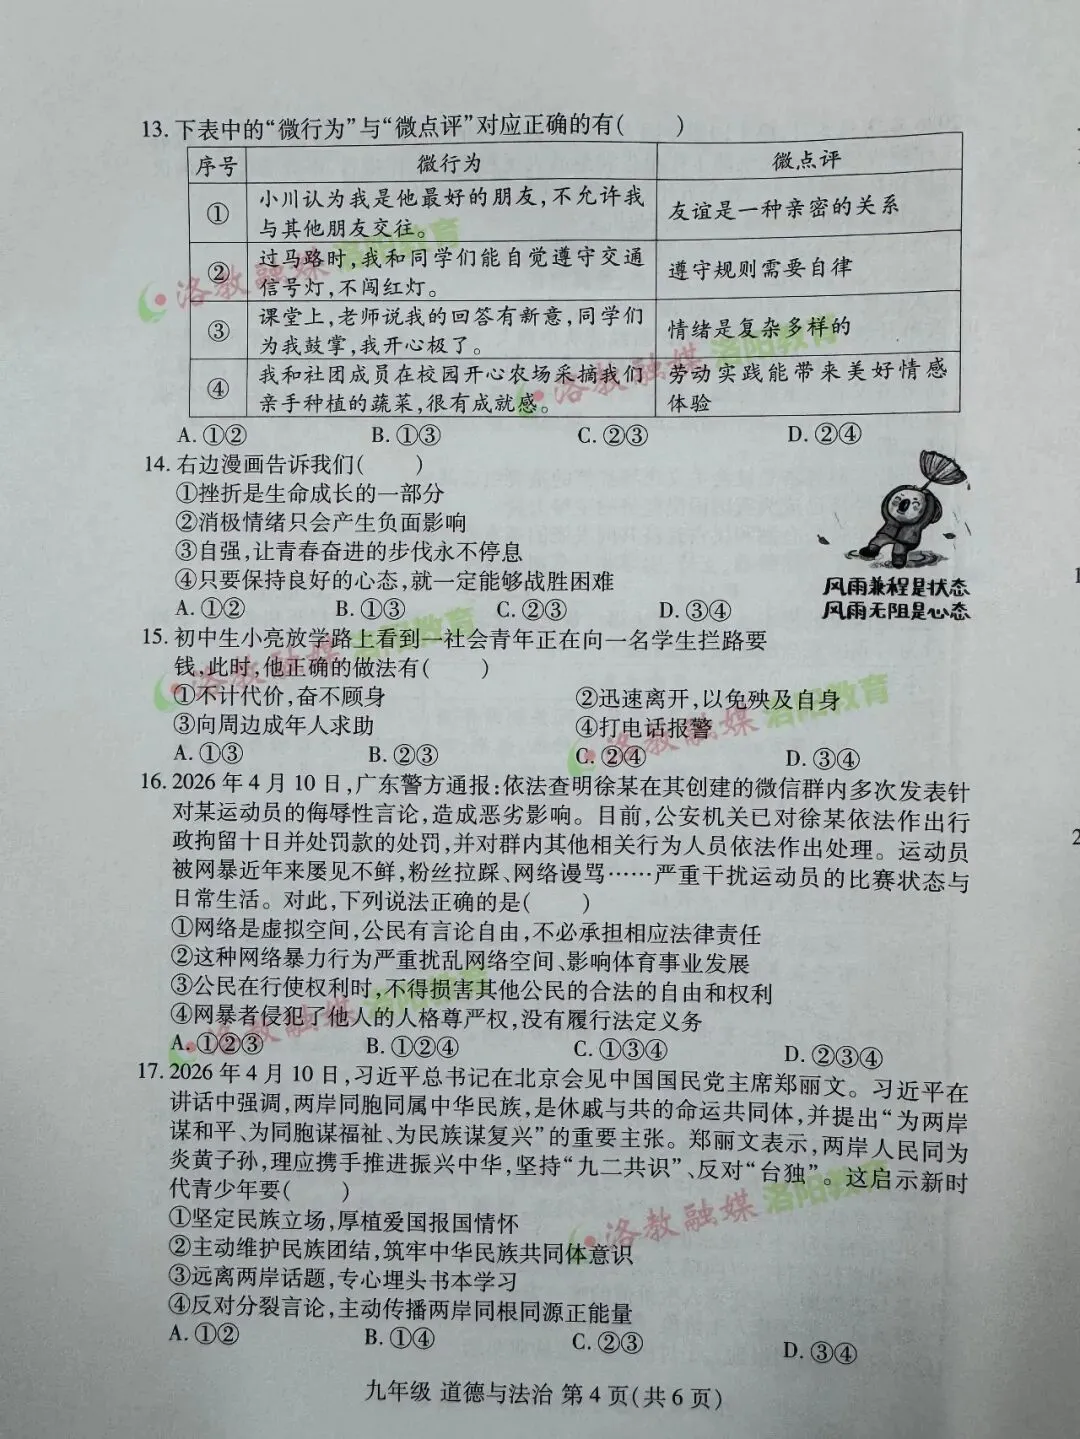 13. 下表中的“微行为”与“微点评”对应正确的有(　　)
序号 微行为 微点评
① 小川认为我是他最好的朋友,不允许我与其他朋友交往。 友谊是一种亲密的关系
② 过马路时,我和同学们能自觉遵守交通信号灯,不闯红灯。 遵守规则需要自律
③ 课堂上,老师说我的回答有新意,同学们为我鼓掌,我开心极了。 情绪是复杂多样的
④ 我和社团成员在校园开心农场采摘我们亲手种植的蔬菜,很有成就感。 劳动实践能带来美好情感体验
A. ①② B. ①③ C. ②③ D. ②④
14. 右边漫画告诉我们(　　)
①挫折是生命成长的一部分
②消极情绪只会产生负面影响
③自强,让青春奋进的步伐永不停息
④只要保持良好的心态,就一定能够战胜困难
A. ①② B. ①③ C. ②③ D. ③④
风雨兼程是状态
风雨无阻是心态
15. 初中生小亮放学路上看到一社会青年正在向一名学生拦路要
钱,此时,他正确的做法有(　　)
①不计代价,奋不顾身 ②迅速离开,以免殃及自身
③向周边成年人求助 ④打电话报警
A. ①③ B. ②③ C. ②④ D. ③④
16. 2026 年 4 月 10 日,广东警方通报:依法查明徐某在其创建的微信群内多次发表针
对某运动员的侮辱性言论,造成恶劣影响。目前,公安机关已对徐某依法作出行
政拘留十日并处罚款的处罚,并对群内其他相关行为人员依法作出处理。运动员
被网暴近年来屡见不鲜,粉丝拉踩、网络谩骂……严重干扰运动员的比赛状态与
日常生活。对此,下列说法正确的是(　　)
①网络是虚拟空间,公民有言论自由,不必承担相应法律责任
②这种网络暴力行为严重扰乱网络空间、影响体育事业发展
③公民在行使权利时,不得损害其他公民的合法的自由和权利
④网暴者侵犯了他人的人格尊严权,没有履行法定义务
A. ①②③ B. ①②④ C. ①③④ D. ②③④
17. 2026 年 4 月 10 日,习近平总书记在北京会见中国国民党主席郑丽文。习近平在
讲话中强调,两岸同胞同属中华民族,是休戚与共的命运共同体,并提出“为两岸
谋和平、为同胞谋福祉、为民族谋复兴”的重要主张。郑丽文表示,两岸人民同为
炎黄子孙,理应携手推进振兴中华,坚持“九二共识”、反对“台独”。这启示新时
代青少年要(　　)
①坚定民族立场,厚植爱国报国情怀
②主动维护民族团结,筑牢中华民族共同体意识
③远离两岸话题,专心埋头书本学习
④反对分裂言论,主动传播两岸同根同源正能量
A. ①② B. ①④ C. ②③ D. ③④
九年级 道德与法治 第 4 页(共 6 页)
洛教融媒 洛阳教育
洛教融媒 洛阳教育
洛教融媒 洛阳教育
洛教融媒 洛阳教育
洛教融媒 洛阳教育
洛教融媒 洛阳教育